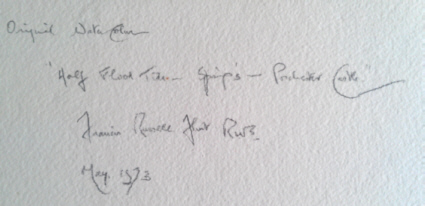 Original Water Colour
"Half Flood Tide - Springs - Portchester Castle"
Francis Russell Flint RWS.
May. 1973